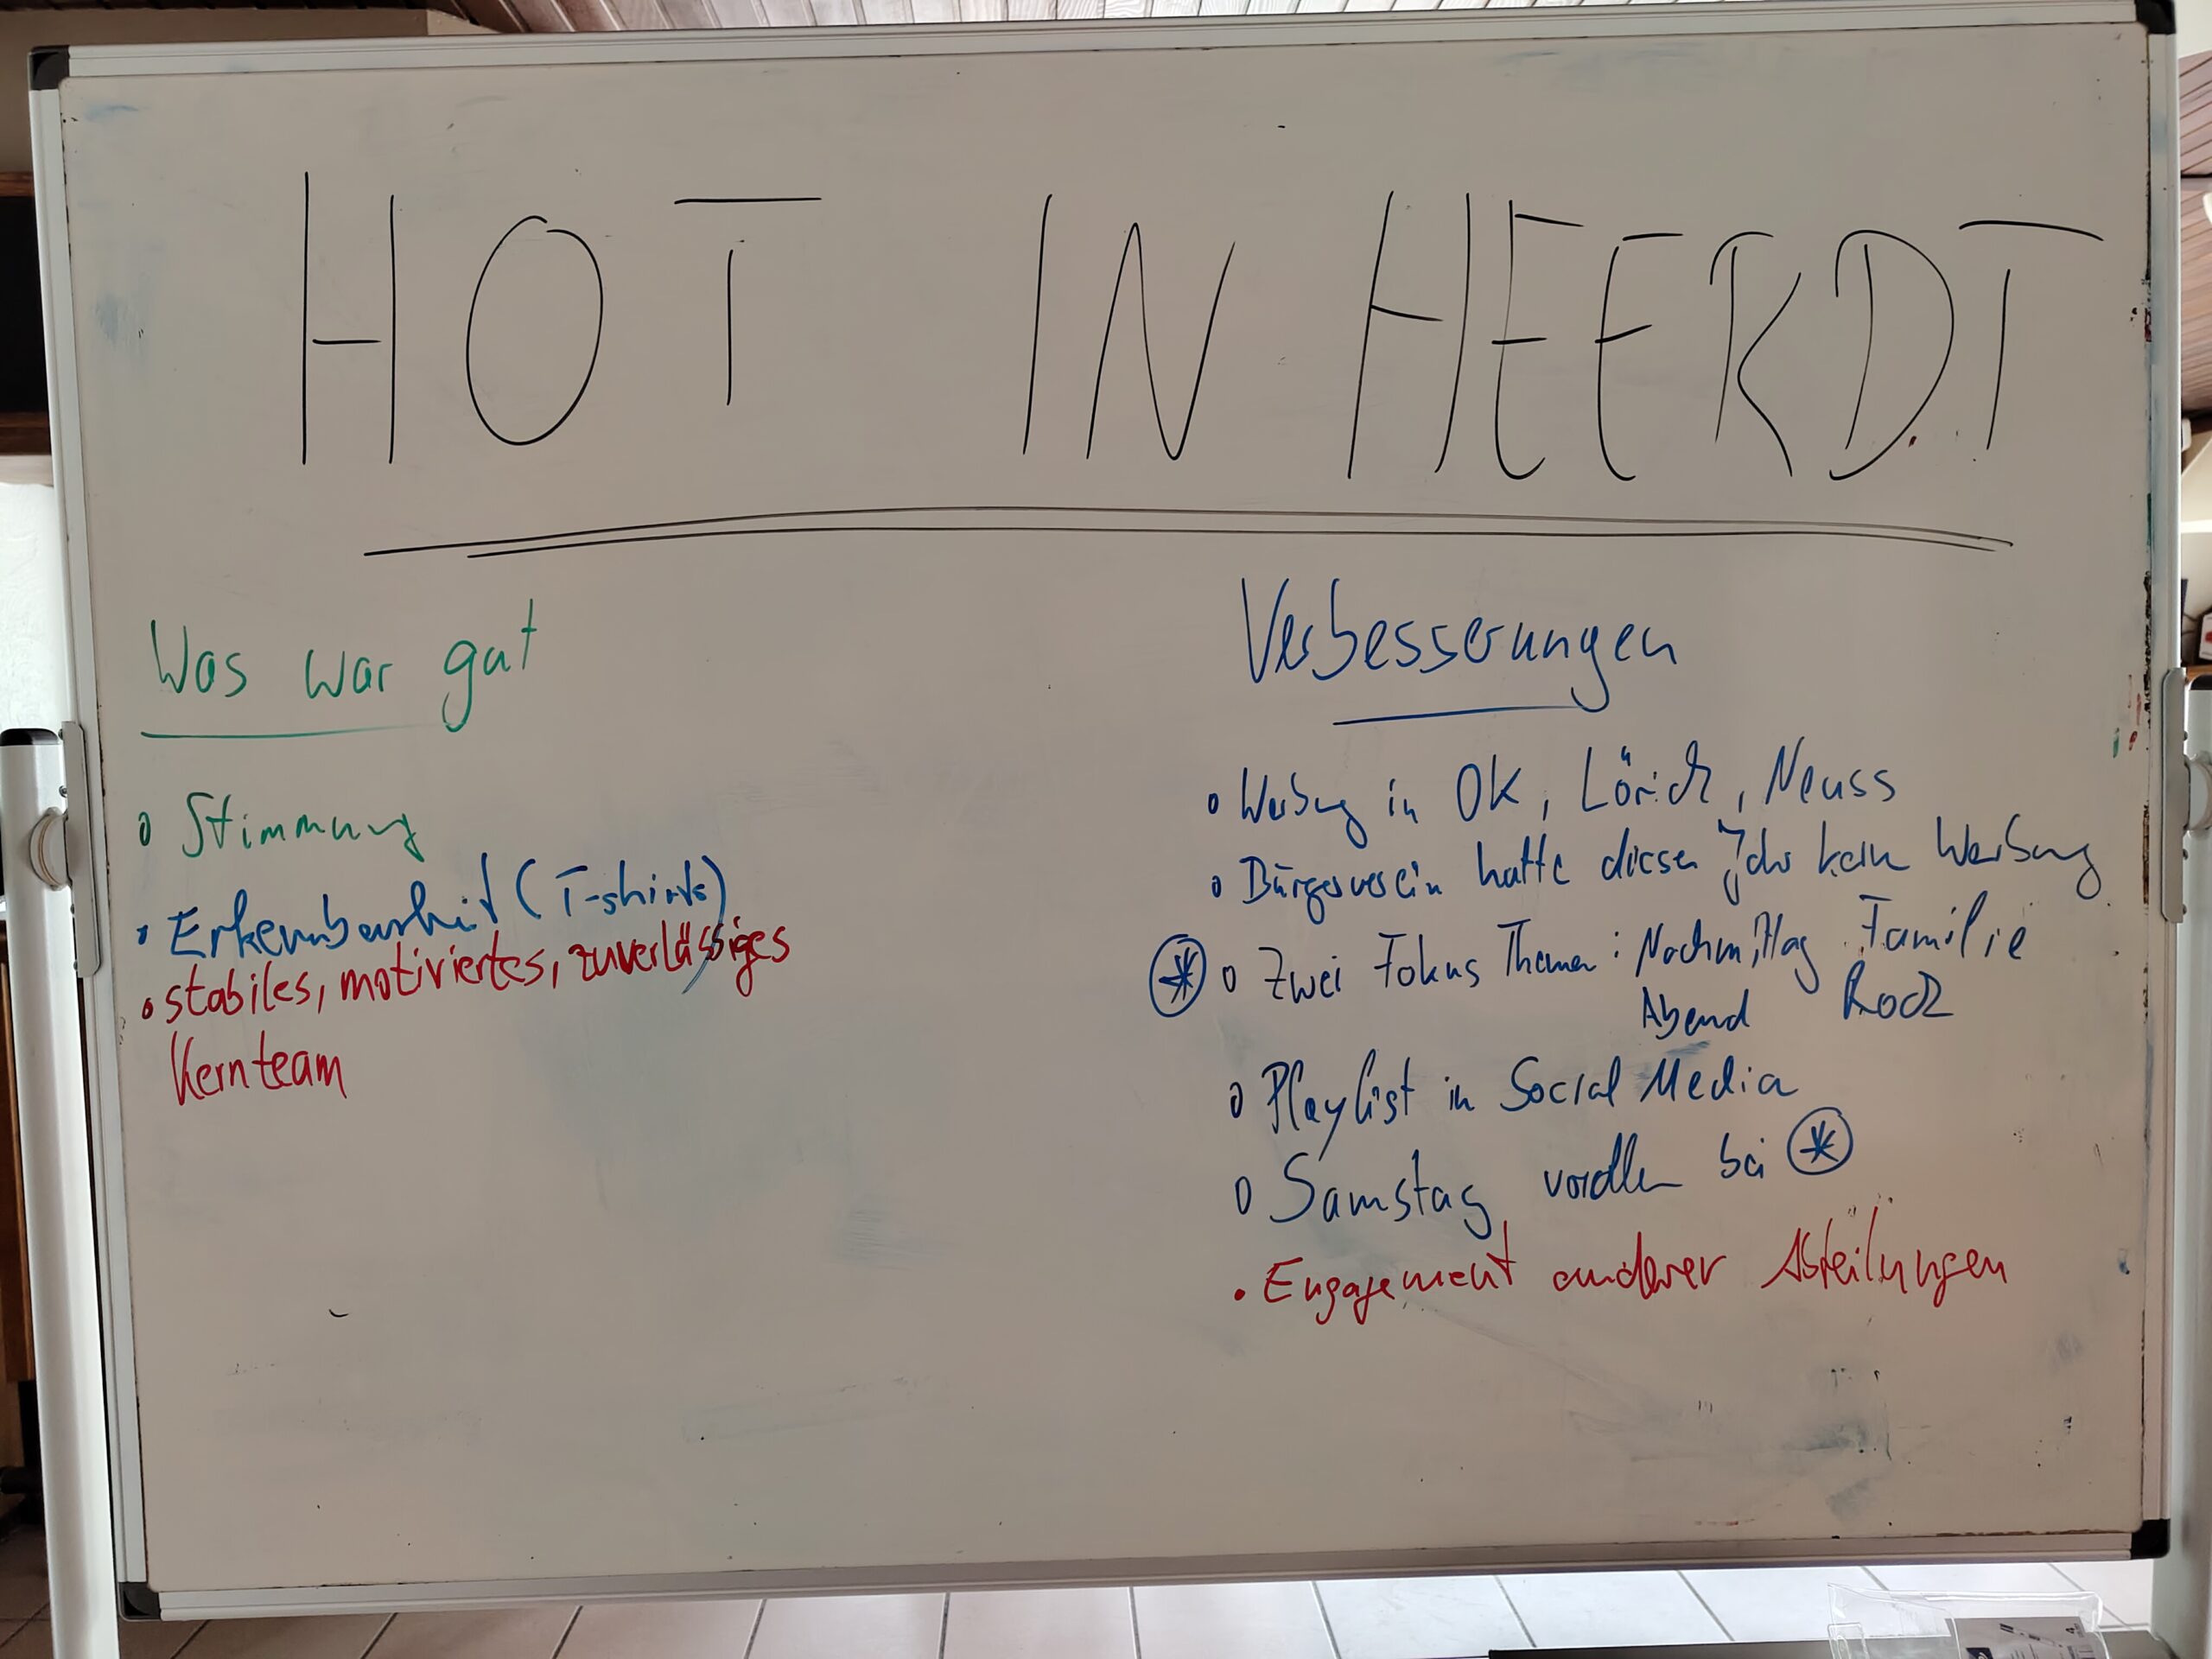 HOT IN HEERDT
Was war gut
Stimmung
Erkennbarkeit (T-shirts)
stabiles, motiviertes, zuverlässiges
Kernteam
Verbesserungen
Werbung in OK, Lörick, Neuss
Bürgerverein hatte dieses Jahr kein Werbung
Zwei Fokus Themen: Nachmittag Familie
Abend Rock
Playlist in Social Media
Samstag bei
Engagement anderer Abteilungen